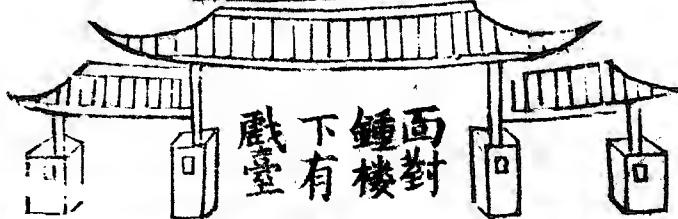 面對
鍾楼
下有
戲臺